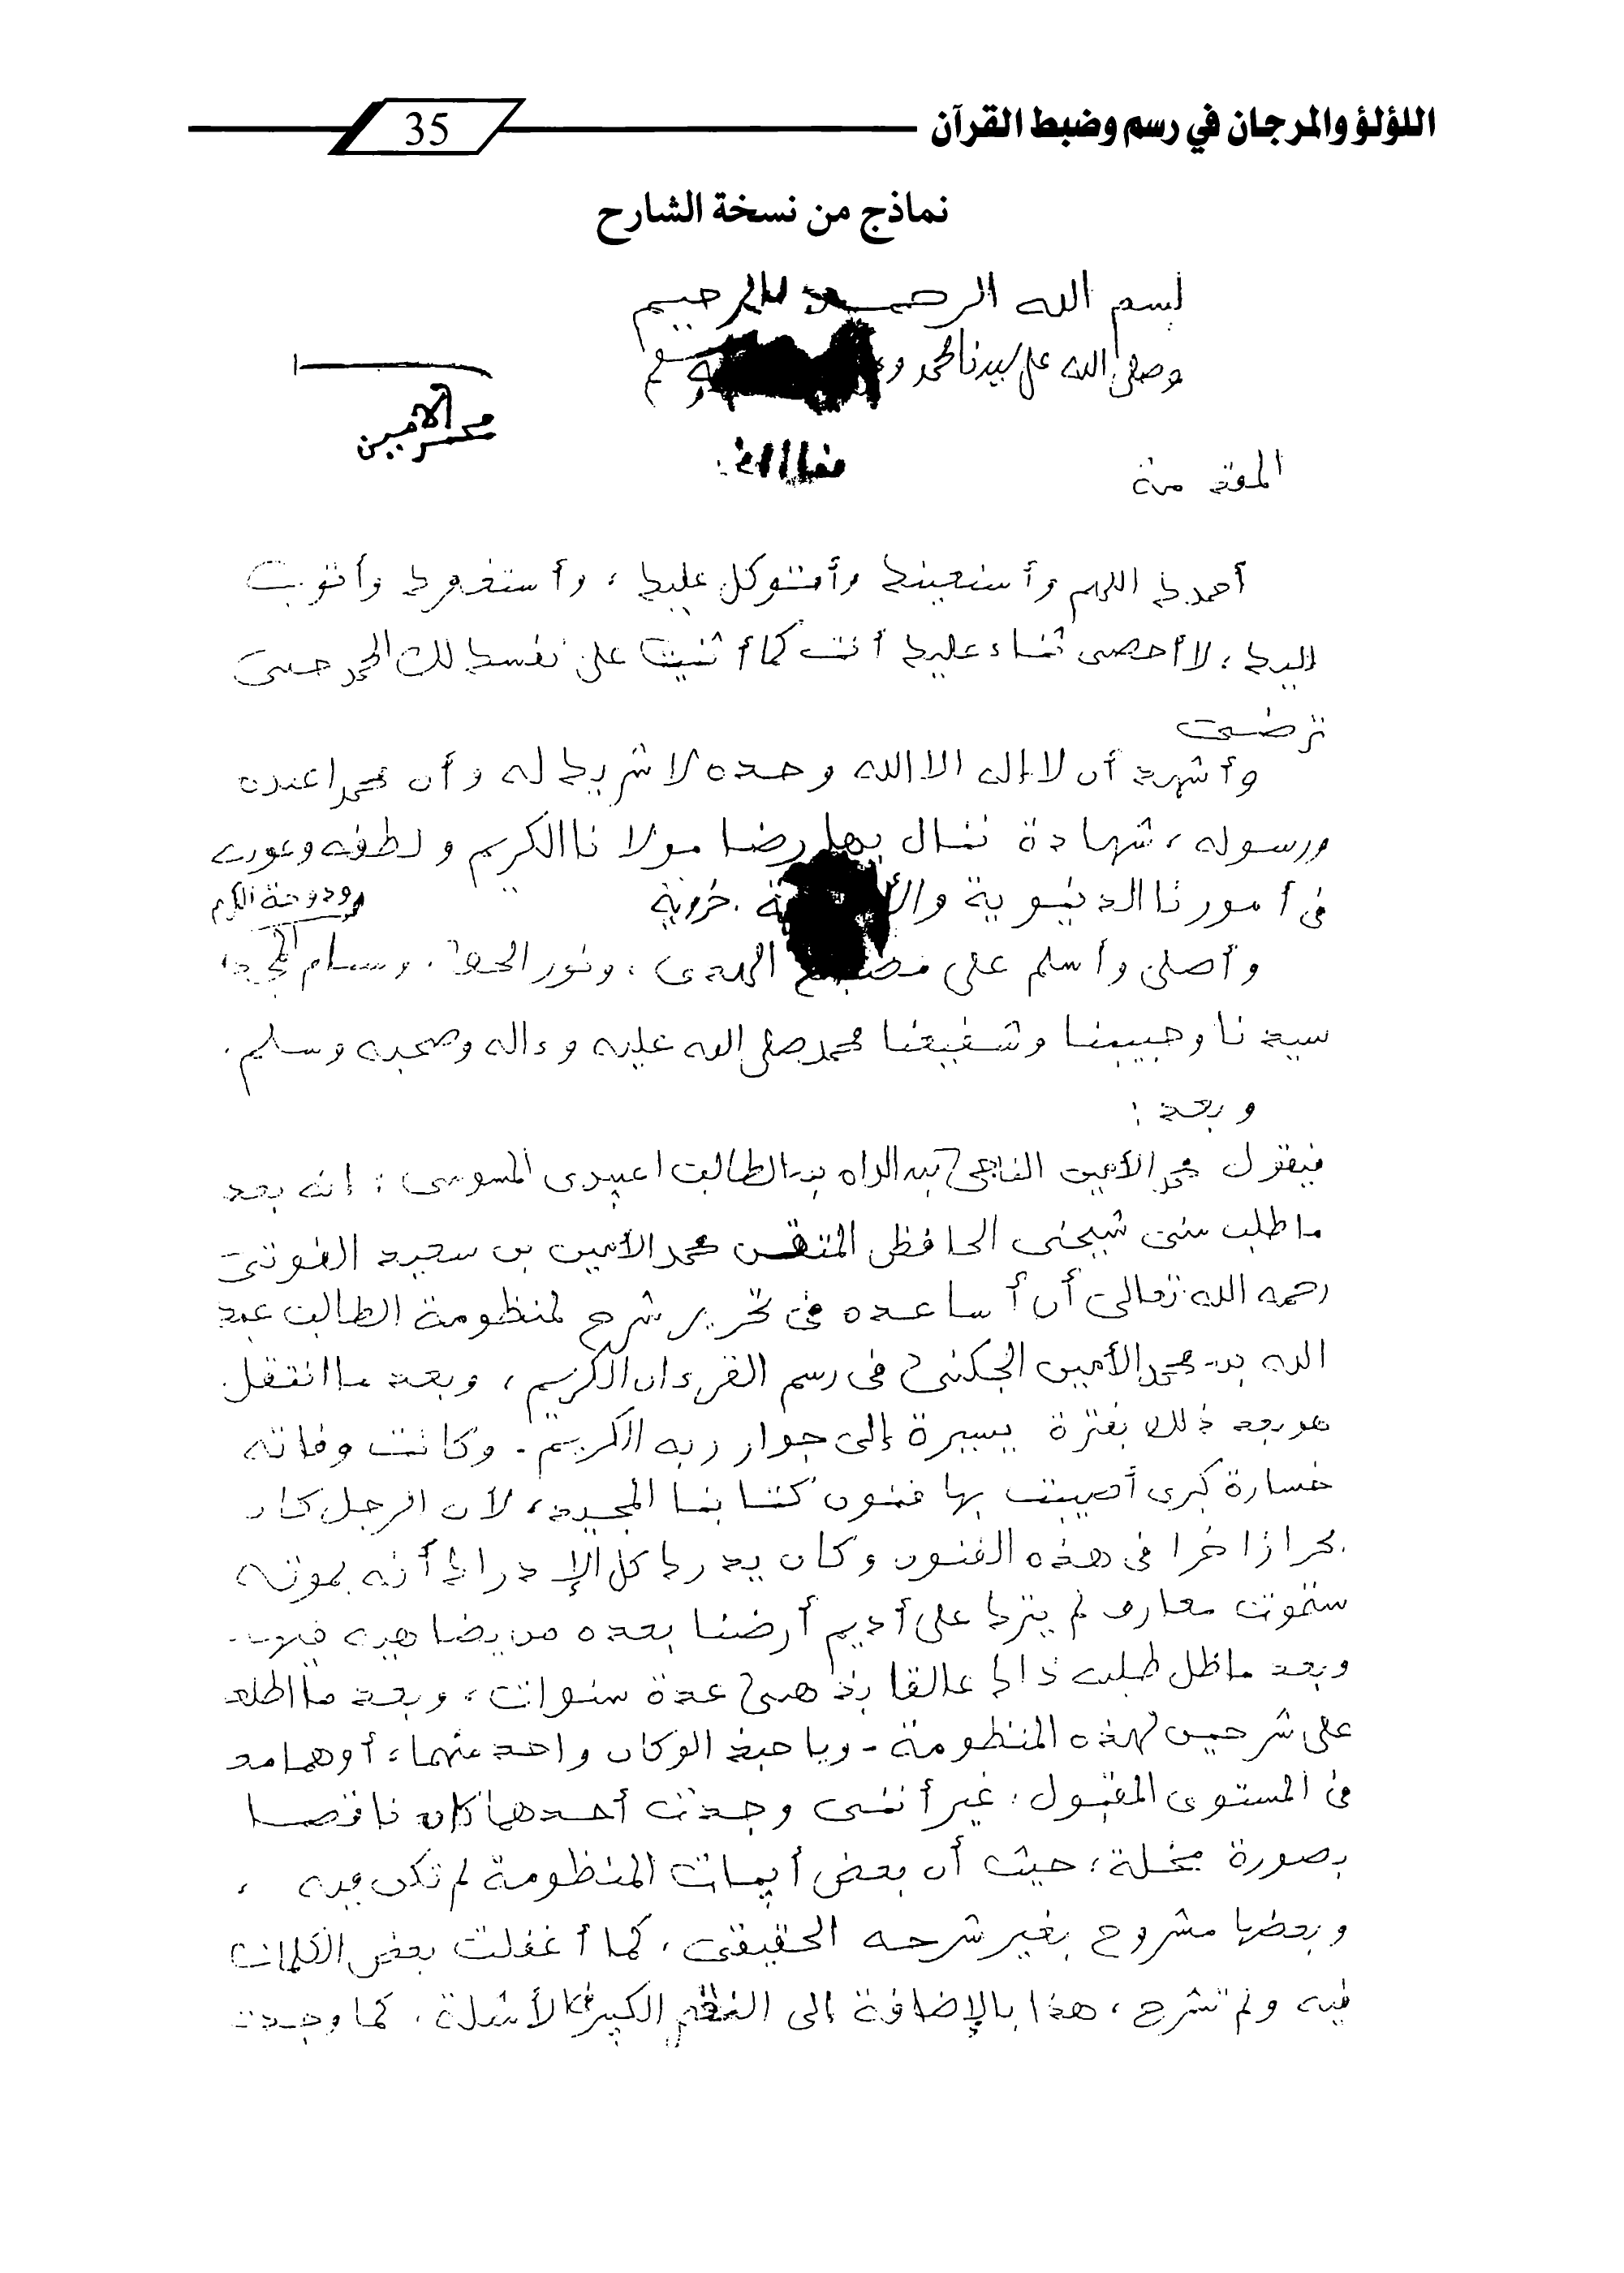 اللؤلؤ والمرجان في رسم وضبط القرآن
35
نماذج من نسخة الشارح
بسم الله الرحمن الرحيم
وصلى الله على سيدنا محمد وسلم
محمد الأمين
المقدمة
أحمدك اللهم وأستعينك وأتوكل عليك، وأستغفرك وأتوب
إليك، لا أحصى ثناء عليك أنت كما أثنيت على نفسك لك الحمد حتى
ترضى
وأشهد أن لا إله الا الله وحده لا شريك له وأن محمدا عبده
ورسوله، شهادة ننال بها رضا مولانا الكريم ولطفه وعونه
فى أمورنا الدنيوية
ودوحة الكرم
وأصلى وأسلم على الهدى، ونور الحق، وسنام المجد،
سيدنا وحبيبنا وشفيعنا محمد صلى الله عليه وءاله وصحبه وسلم.
وبعد:
فيقول محمد الأمين الناجى بن الداه بن الطالب اعبيدى المسومى: إنه بعد
ما طلب منى شيخى الحافظ المتقن محمد الأمين بن سعيد الفوتى
رحمه الله تعالى أن أساعده فى تحرير شرح لمنظومة الطالب عبد
الله بن محمد الأمين الجكنى فى رسم القرءان الكريم، وبعد ما انتقل
هو بعد ذلك بفترة يسيرة إلى جوار ربه الكريم. وكانت وفاته
خسارة كبرى أصيبت بها فنون كتابنا المجيد، لأن الرجل كان
بحرا زاخرا فى هذه الفنون وكان يدرك كل الإدراك أنه بموته
ستموت معارف لم يترك على أديم أرضنا بعده من يضاهيه فيها.
وبعد ما ظل طلبه ذاك عالقا بذهنى عدة سنوات، وبعد ما اطلعت
على شرحين لهذه المنظومة - ويا حبذا لو كان واحد منهما، أو هما معا
فى المستوى المقبول، غير أننى وجدت أحدهما كان ناقصا
بصورة مخلة، حيث أن بعض أبيات المنظومة لم تكن فيه،
وبعضها مشروح بغير شرحه الحقيقى، كما أغفلت بعض الكلمات
فيه ولم تشرح، هذا بالإضافة إلى النقص الكبير فى الأمثلة، كما وجدت